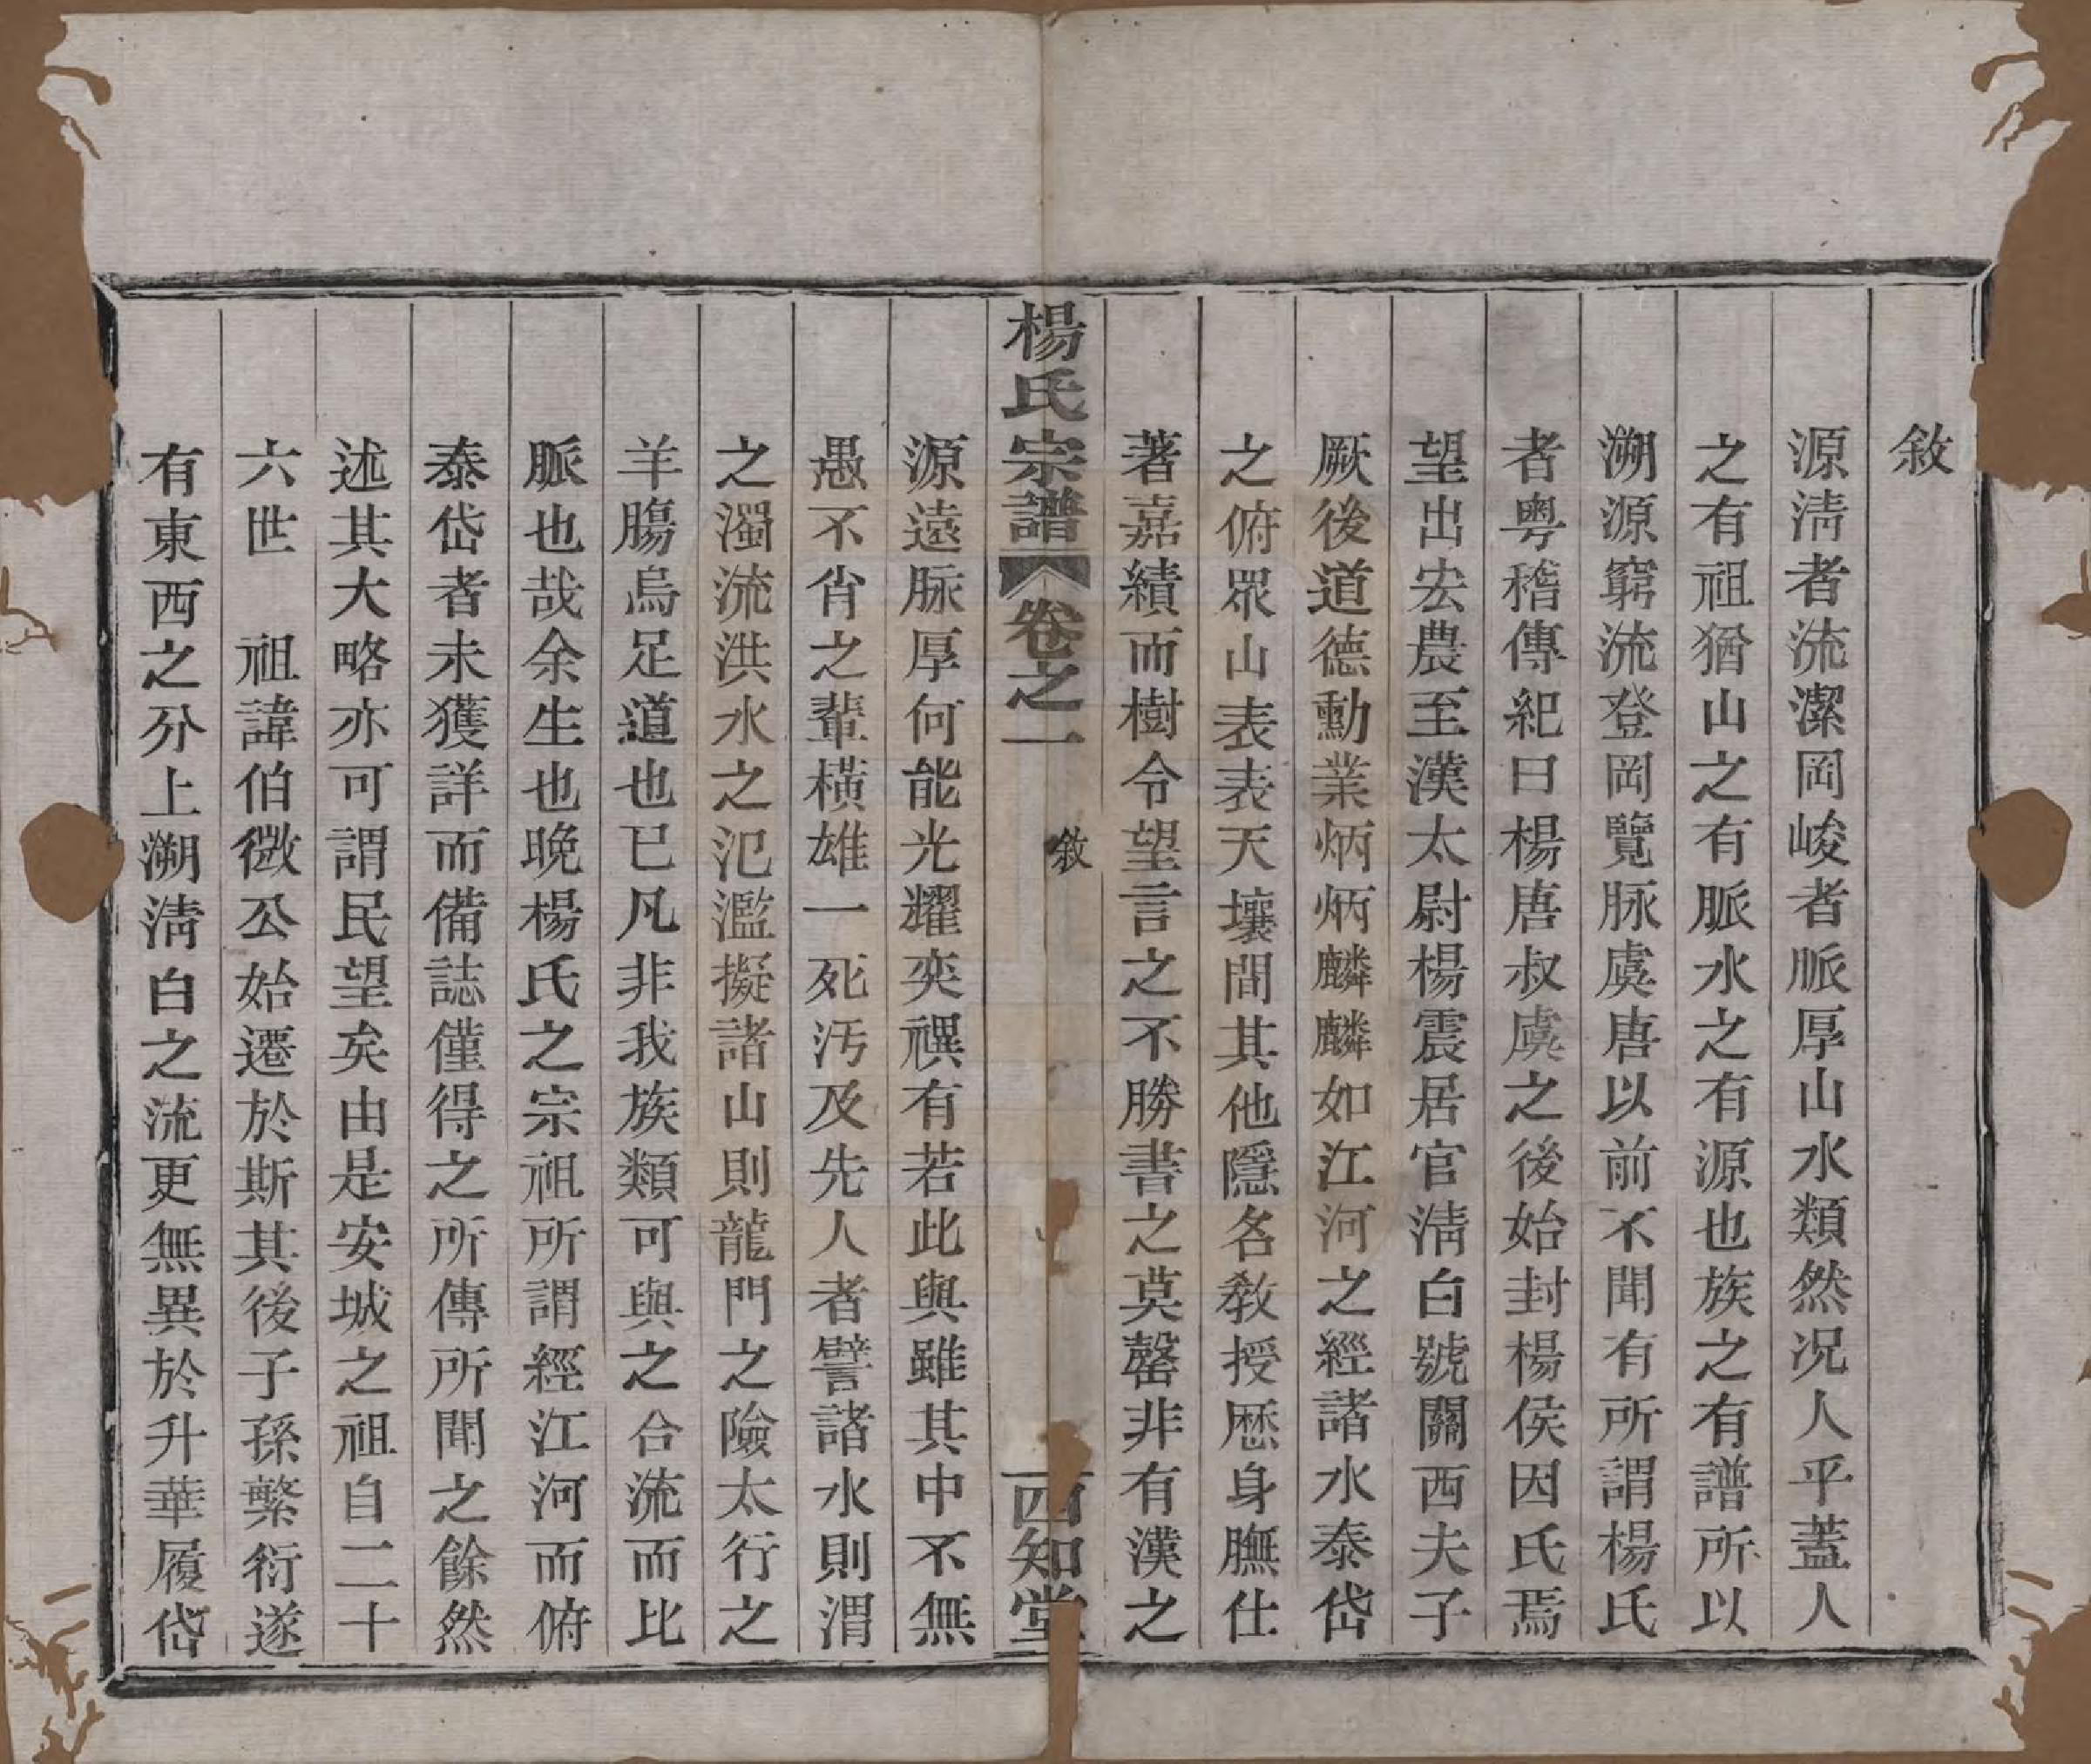 敘
源淸者流潔岡峻者脈厚山水類然况人乎蓋人
之有祖猶山之有脈水之有源也族之有譜所以
溯源窮流登岡覽脉虞唐以前不聞有所謂楊氏
者粤稽傳紀曰楊唐叔虞之後始封楊侯因氏焉
望出宏農至漢太尉楊震居官淸白號關西夫子
厥後道德勳業炳炳麟麟如江河之經諸水泰岱
之俯眾山表表天壤間其他隱名敎授歷身膴仕
著嘉績而樹令望言之不勝書之莫罄非有漢之
楊氏宗譜 卷之一 敘 四知堂
源遠脉厚何能光耀奕禩有若此與雖其中不無
愚不肖之輩橫雄一死汚及先人者譬諸水則渭
之濁流洪水之氾濫擬諸山則龍門之險太行之
羊腸烏足道也已凡非我族類可與之合流而比
脈也哉余生也晚楊氏之宗祖所謂經江河而俯
泰岱者未獲詳而備誌僅得之所傳所聞之餘然
述其大略亦可謂民望矣由是安城之祖自二十
六世　祖諱伯微公始遷於斯其後子孫繁衍遂
有東西之分上溯淸白之流更無異於升華履岱